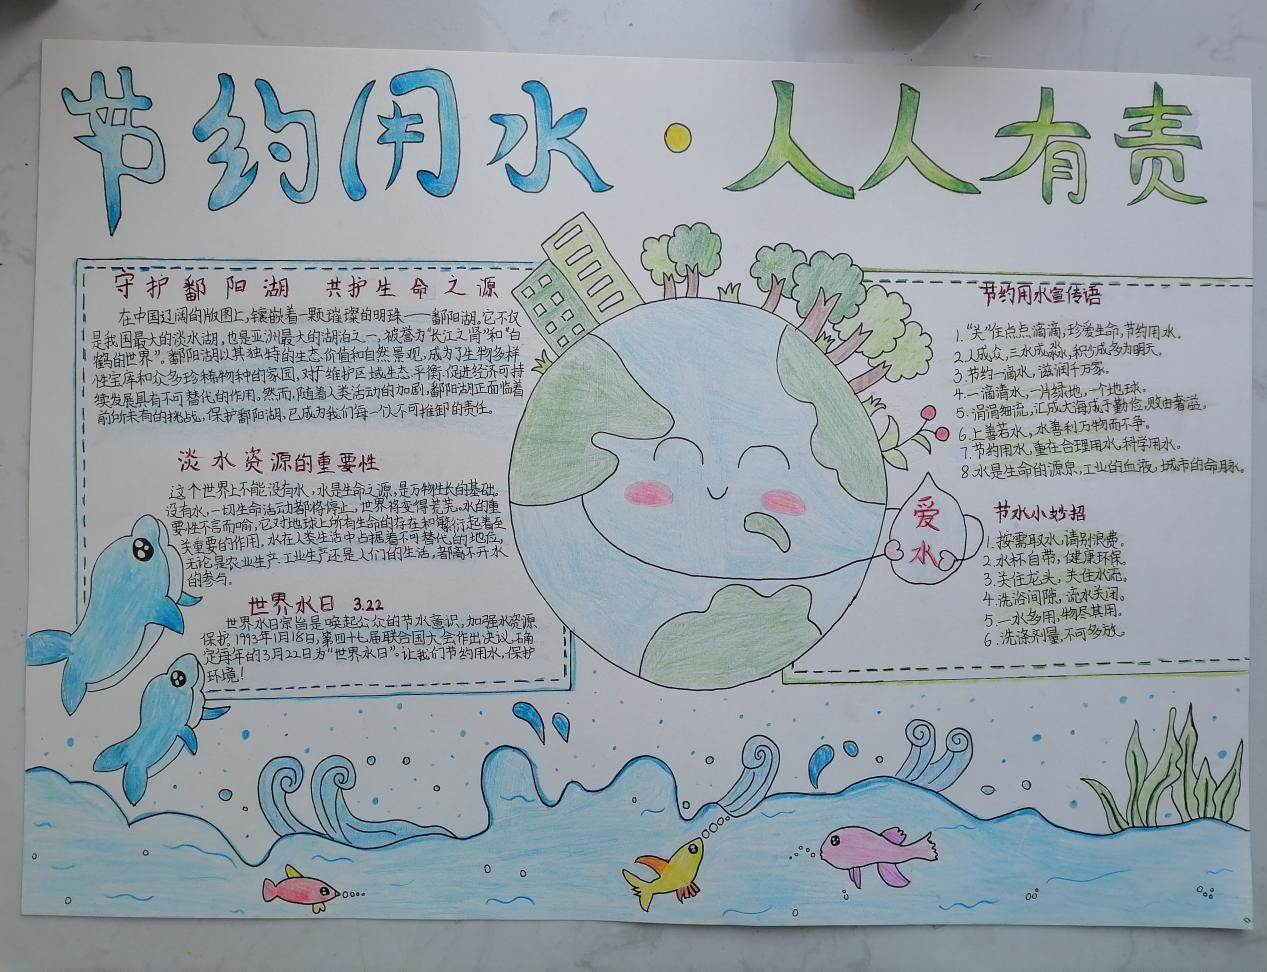 节约用水·人人有责
守护鄱阳湖 共护生命之源
在中国辽阔的版图上,镶嵌着一颗璀璨的明珠——鄱阳湖。它不仅
是我国最大的淡水湖,也是亚洲最大的湖泊之一,被誉为“长江之肾”和“白
鹤的世界”。鄱阳湖以其独特的生态价值和自然景观,成为了生物多样
性宝库和众多珍稀物种的家园,对于维护区域生态平衡,促进经济可持
续发展具有不可替代的作用。然而,随着人类活动的加剧,鄱阳湖正面临着
前所未有的挑战,保护鄱阳湖,已成为我们每一个人不可推卸的责任。
淡水资源的重要性
这个世界上不能没有水,水是生命之源,是万物生长的基础。
没有水,一切生命活动都将停止,世界将变得荒芜。水的重
要性不言而喻,它对地球上所有生命的存在和繁衍起着至
关重要的作用。水在人类生活中占据着不可替代的地位,
无论是农业生产、工业生产还是人们的生活,都离不开水
的参与。
世界水日 3.22
世界水日宗旨是唤起公众的节水意识,加强水资源
保护。1993年1月18日,第四十七届联合国大会作出决议,确
定每年的3月22日为“世界水日”。让我们节约用水,保护
环境!
爱
水
节约用水宣传语
1.“关”住点点滴滴,珍爱生命,节约用水。
2.人成众,三水成淼,积少成多为明天。
3.节约一滴水,滋润千万家。
4.一滴清水,一片绿地,一个地球。
5.涓涓细流,汇成大海,成于勤俭,败由奢溢。
6.上善若水,水善利万物而不争。
7.节约用水,重在合理用水,科学用水。
8.水是生命的源泉,工业的血液,城市的命脉。
节水小妙招
1.按需取水,请别浪费。
2.水杯自带,健康环保。
3.关住龙头,关住水流。
4.洗浴间隙,流水关闭。
5.一水多用,物尽其用。
6.洗涤剂量,不可多放。